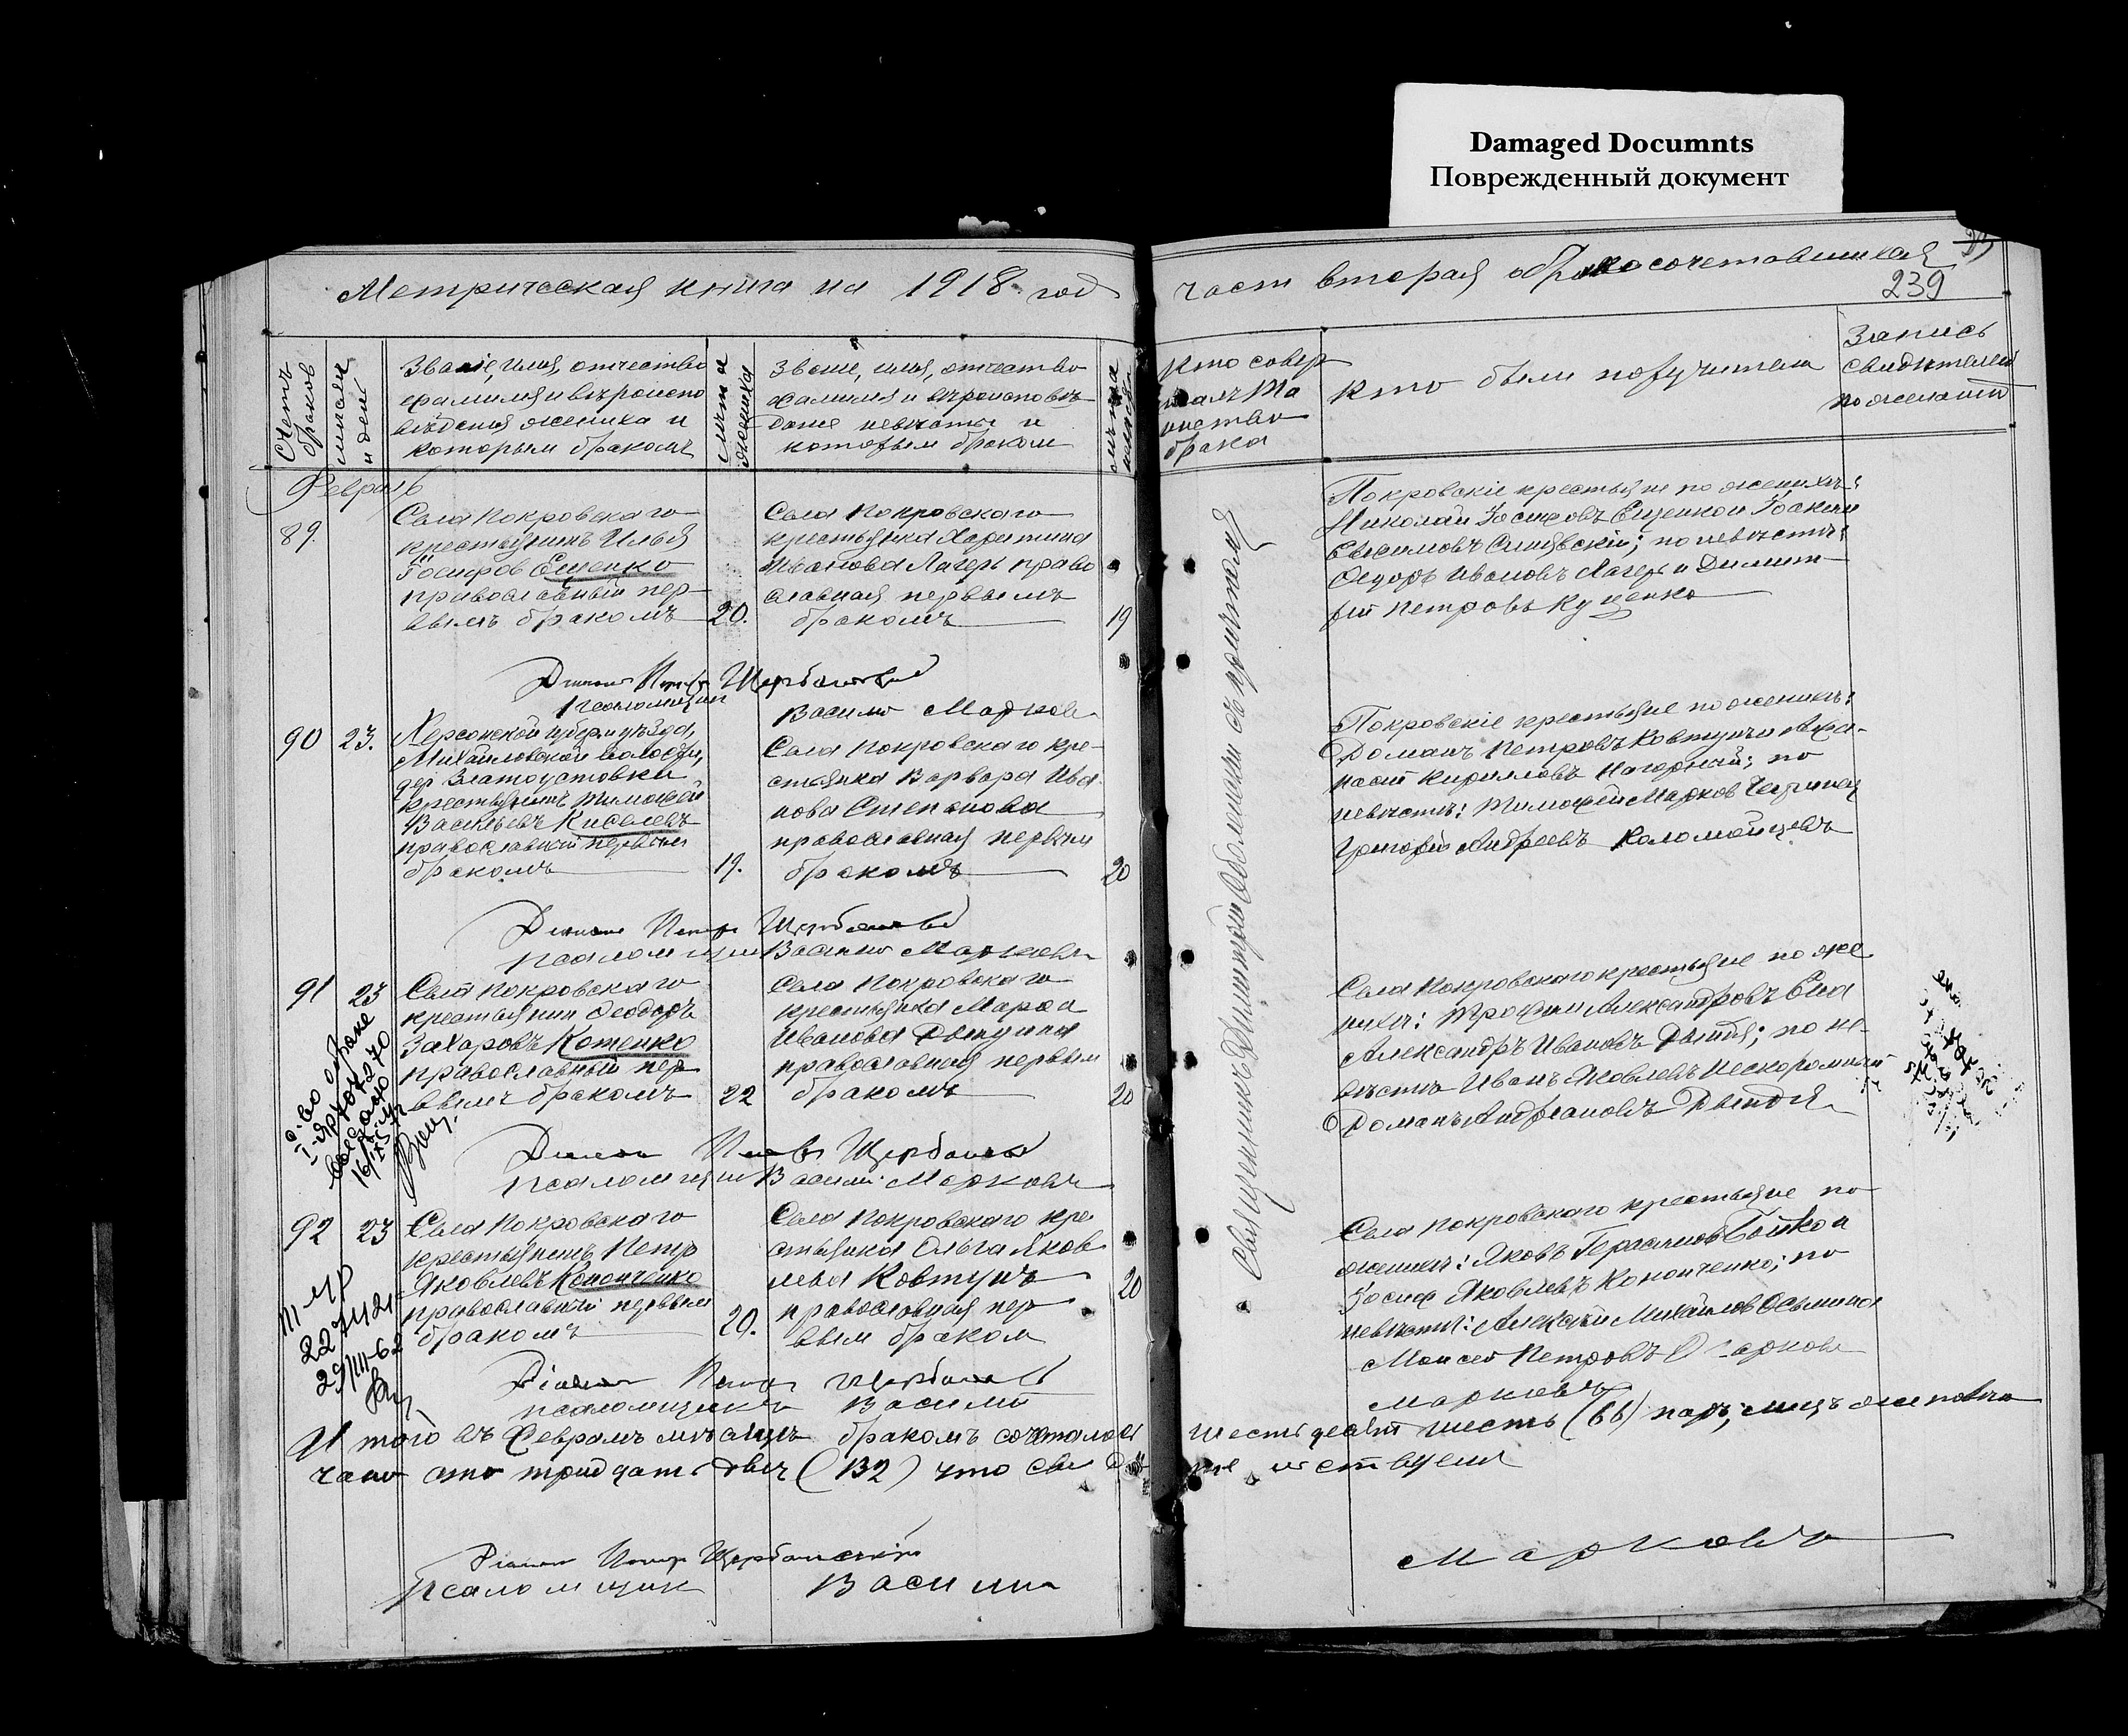 Damaged Documnts
Поврежденный документ
Метрическая книга на 1918 год
часть вторая о бракосочетавшихся
239
Счетъ браковъ
мѣсяц и день
Званіе, имя, отчество
фамилия и вѣроиспо
вѣдания жениха и
которым бракомъ
лѣта жениха
Званіе, имя, отчество
фамилия и вѣроисповѣ-
дание невѣсты и
которым браком
лѣта невѣсты
Кто совер
шалъ та
инство
брака
Кто были поручители
Запись
свидѣтелей
по желанію
Февраль
89.
Села Покровскаго
крестьянинъ Илья
Іосифов Ещенко
православный пер-
вымъ бракомъ
20.
Села Покровскаго
крестьянка
Иванова Лагерь право
славная первымъ
бракомъ
19
Покровскіе крестьяне по женихѣ:
Николай Іосифовъ Ещенко и Іоаким
Евфимовъ Синявскій; по невѣстѣ:
Федоръ Ивановъ Лагерь и Димит-
рій Петровъ Куценко
Диакон Петръ Щербановскій
псаломщик
Василий Марковъ
90
23.
Херсонской губерн и уѣзда,
Михайловской волости,
дер Златоустовки
крестьянинъ Тимофей
Васильевъ Киселевъ
православный первым
бракомъ
19.
Села Покровскаго кре-
стьянка Варвара Ива
нова Степанова
православная первым
бракомъ
20
Покровскіе крестьяне по женихѣ:
Романъ Петровъ Ковтунъ и Афа-
насій Кириловъ Нагорный; по
невѣстѣ: Тимофей Марков
Григорій Андреевъ Коломойцевъ
Диакон Петръ Щербановскій
псаломщик Василий Марковъ
91
23
Села Покровскаго
крестьянин Феодоръ
Захаровъ Котенко
православный пер
вымъ бракомъ
22
Села Покровскаго
крестьянка Марфа
Иванова
православная первым
бракомъ
20
Села Покровскаго крестьяне по же
нихѣ: Трофим Александровъ
Александръ Ивановъ Дындя; по не-
вѣстѣ Иванъ Яковлевъ Нескоромный
Романъ Андреановъ Дындя
с-во о браке
I-ЯР 707270
выдано
16/IX
Диакон Петръ Щербановскій
псаломщик Василий Марковъ
92
23
Села Покровскаго
крестьянинъ Петр
Яковлевъ Кононченко
православный первым
бракомъ
20.
Села Покровскаго кре
стьянка Ольга Яков
лева Ковтунъ
православная пер
вым браком
20
Села Покровскаго крестьяне по
женихѣ: Яковъ Герасимов Бойко и
Іосиф Яковлевъ Кононченко; по
невѣстѣ: Алексѣй Михайлов Осьмина
Моисей Петровъ
29/III-62
Священникъ Димитрій Оболенский съ причтомъ
Діакон Петръ Щербановскій
псаломщикъ Василий
Марковъ
И того въ Февралѣ мѣсяцѣ бракомъ сочеталось шестьдесят шесть (66) паръ; лицъ же повѣн
чано сто тридцать двѣ (132) что свидѣ тельствуем
Діакон Петръ Щербановскій
Псаломщик Василий
Марковъ